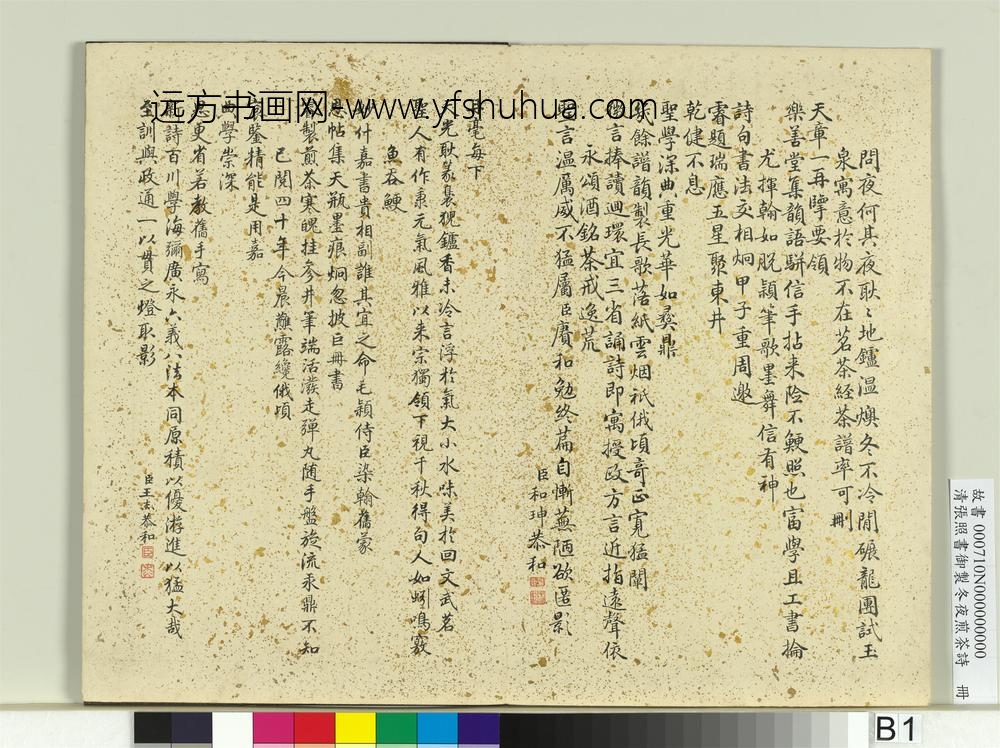 問夜何其夜耿耿地鑪温燠冬不冷閒碾龍團試玉
泉寓意於物不在茗茶經茶譜率可刪
天章一再擘要領
樂善堂集韻語駢信手拈来险不鯁照也富學且工書掄
尤揮翰如脱穎筆歌墨舞信有神
詩句書法交相炯甲子重周邀
睿題瑞應五星聚東井
乾健不息
聖學深曲重光華如彜鼎
餘諧韻製長歌落紙雲烟祇俄頃竒正寛猛闡
言捧讀迴環宜三省誦詩即寓授政方言近指遠聲依
永頌酒銘茶戒逸荒
言温厲威不猛屬臣賡和勉終萹自慚蕪陋欲匿影
臣和珅恭和
毫每下
光耿篆裊猊鑪香未冷言浮於氣大小水味美於回文武茗
聖人有作秉元氣風雅以来宗獨領下視千秋得句人如蚓鳴竅
魚吞鯁
什嘉書貴相副誰其宜之命毛穎侍臣染翰舊篆
帖集天瓶墨痕炯忽披巨冊書
製煎茶寒魄挂參井筆端活潑走彈丸随手盤旋流汞鼎不知
已閱四十年今晨薤露纔俄頃
鑒精能是用嘉
學崇深
更省若教舊手寫
詩百川學海彌廣永六義八法本同原積以優游進以猛大哉
聖訓與政通一以貫之燈取影
臣王杰恭和
远方书画网 www.yfshuhua.com
故書 000710N000000000
清張照書御製冬夜煎茶詩 冊
B1